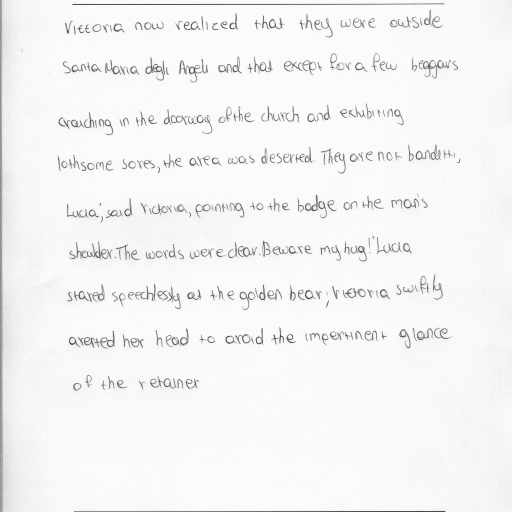 Vittoria now realized that they were outside
Santa Maria degli Angeli and that except for a few beggars
crouching in the doorway of the church and exhibiting
lothsome sores, the area was deserted. They are not banditti,
Lucia,' said Victoria, pointing to the badge on the man's
shoulder. The words were clear. Beware my hug!' Lucia
stared speechlessly at the golden bear; Vittoria swiftly
averted her head to avoid the impertinent glance
of the retainer